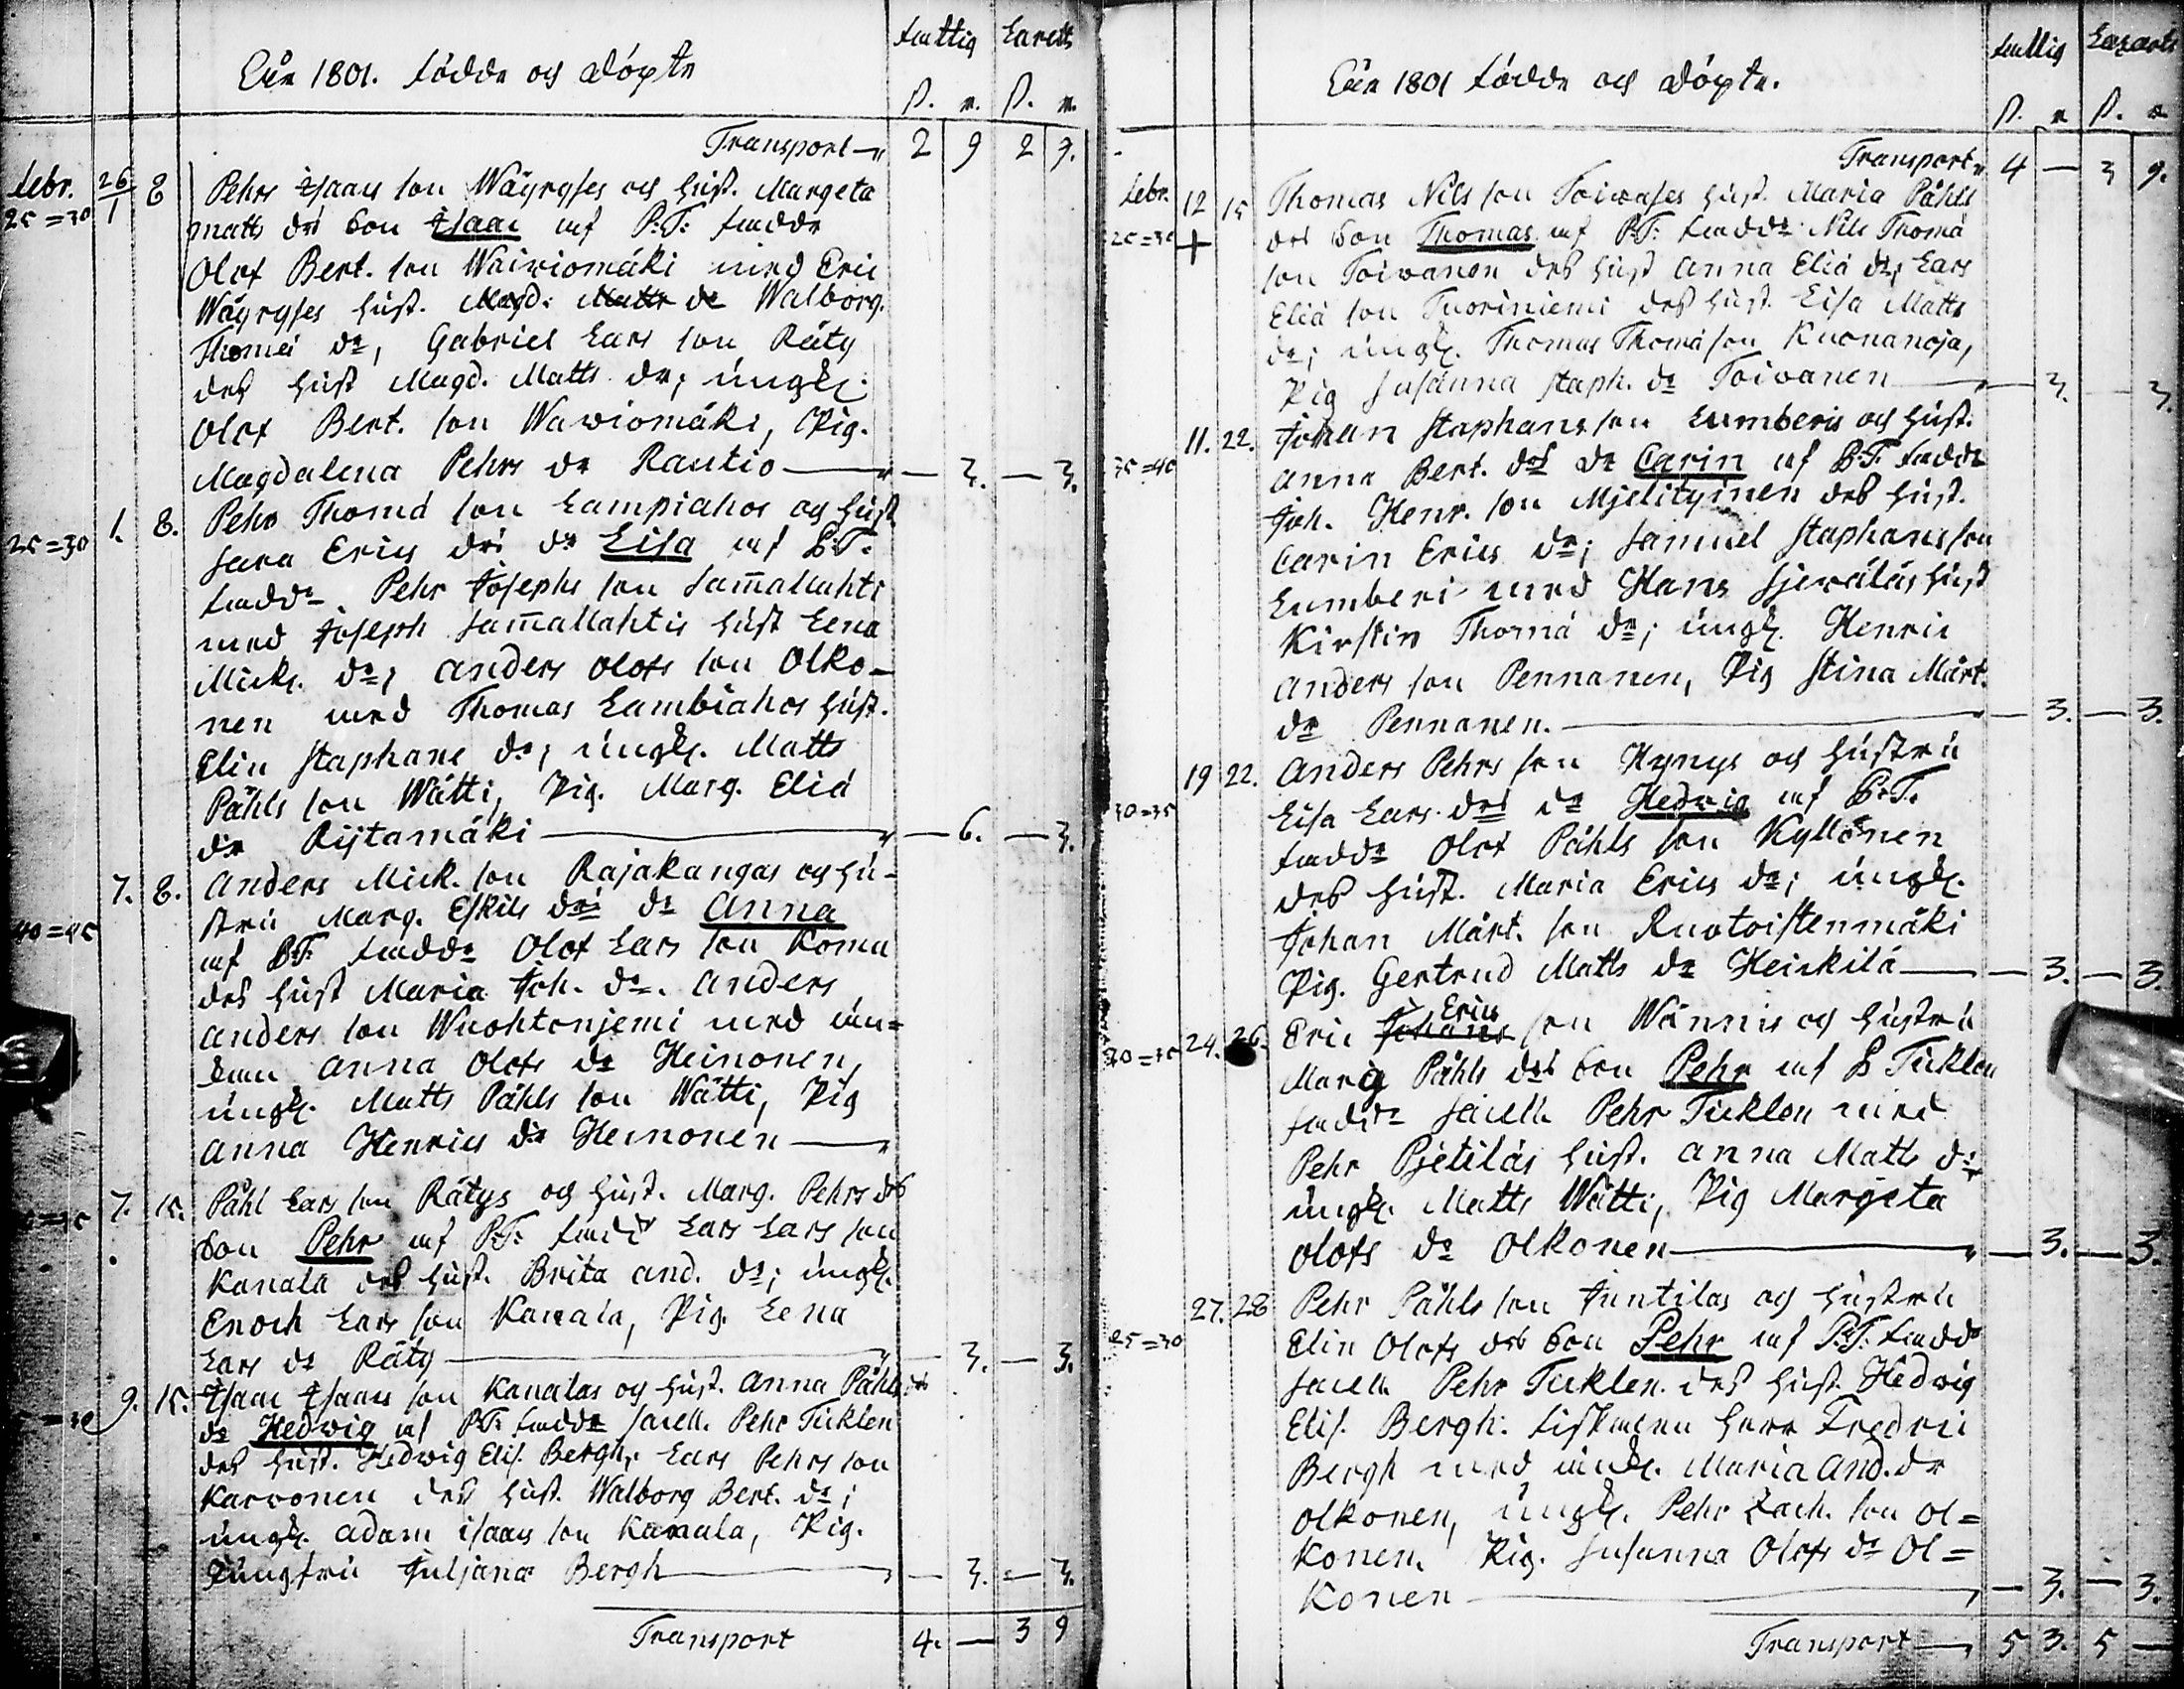 Åhr 1801. födde och döpte
fattig Laretts
ß. r. ß. r.
Transport 2 9 2 9.
Febr. 26/1 8 Pehr Isaacs son Wäyryses och hust. Margeta
25=30 Matts drs son Isaac af B.T. fadd.
Olof Bert. son Waiwiomäki med Eric
Wäyryses hust. Magd. Matts dr Walborg
Thomæ dr, Gabriel Lars son Räty
dess hust Magd. Matts dr; ungk.
Olof Bert. son Wawiomäki, Pig.
Magdalena Pehrs dr Rautio — 3. — 3.
25=30 1. 8. Pehr Thomæ son Lampiahos och hust
Sara Erics drs dr Lisa af B.T.
fadd. Pehr Josephs son Sam̄allahti
med Joseph Sam̄allahtis hust Lena
Mick. dr; Anders Olofs son Olko-
nen med Thomas Lambiahos hust.
Elin Staphans dr; ungk. Matts
Påhls son Wätti, Pig. Marg. Eliæ
dr Rijtamäki — 6. — 3.
40=45 7. 8. Anders Mick. son Rajakangas och hu-
stru Marg. Eskils drs dr Anna
af B.T. fadd. Olof Lars son Komu
dess hust Maria Joh. dr. Anders
Anders son Wuohtonjemi med än-
kan Anna Olofs dr Heinonen,
ungk. Matts Påhls son Wätti, Pig
Anna Henrics dr Heinonen
7. 15. Påhl Lars son Rätys och hust. Marg. Pehrs drs
son Pehr af B.T. fadd. Lars Lars son
Kanala dess hust. Brita And. dr; ungk.
Enoch Lars son Kanala, Pig. Lena
Lars dr Räty — 3. — 3.
9. 15. Isaac Isaacs son Kanalas och hust. Anna Påhls drs
dr Hedwig af B.T. fadd. Pehr Ticklen
dess hust. Hedwig Elis. Bergh, Lars Pehrs son
Karvonen dess hust. Walborg Bert. dr;
ungk. Adam Isaacs son Kanala, Pig.
Jungfru Juljana Bergh — 3. — 3.
Transport 4. — 3 9
Åhr 1801 födde och döpte.
fattig Lazarets
ß. r. ß. r.
Transport 4 — 3 9.
Febr. 12 15 Thomas Nils son Toiwases hust. Maria Påhls
25=30 + drs son Thomas af B.T. fadd. Nils Thomæ
son Toiwanen dess hust Anna Eliæ dr, Lars
Eliæ son Tuoriniemi dess hust. Lisa Matts
dr; ungk. Thomas Thomæ son Kuonanoja,
Pig Susanna Staph. dr Toiwanen — 3. — 3.
11. 22. Johan Staphans son Lumberis och hust.
35=40 Anna Bert. drs dr Carin af B.T. fadd.
Joh. Henr. son Mjelityinen dess hust.
Carin Erics dr; Samuel Staphans son
Lumberi med Hans Sjeväläs hust
Kirstin Thomæ dr; ungk. Henric
Anders son Pennanen, Pig Stina Märt.
dr Pennanen. — 3. — 3.
19 22. Anders Pehrs son Kynys och hustru
30=35 Lisa Lars drs dr Hedwig af B.T.
fadd. Olof Påhls son Kyllönen
dess hust. Maria Erics dr; ungk.
Johan Mårt. son Ruotoistenmäki
Pig. Gertrud Matts dr Heickilä — 3. — 3.
Erics
24. 26. Eric Johans son Wännis och hustru
30=35 Marg Påhls drs son Pehr af B Ticklen
fadd. Pehr Ticklen med
Pehr Pjetiläs hust. Anna Matts dr
ungk. Matts Wätti, Pig Margeta
Olofs dr Olkonen — 3. — 3.
27. 28 Pehr Påhls son Juntilas och hustru
25=30 Elin Olofs drs son Pehr af B.T. fadd.
Pehr Ticklen. dess hust. Hedwig
Elis. Bergh. Herr Fredric
Bergh med änk. Maria And. dr
Olkonen, ungk. Pehr Zach. son Ol=
konen. Pig. Susanna Olofs dr Ol=
konen — 3. — 3.
Transport 5 3. 5 —